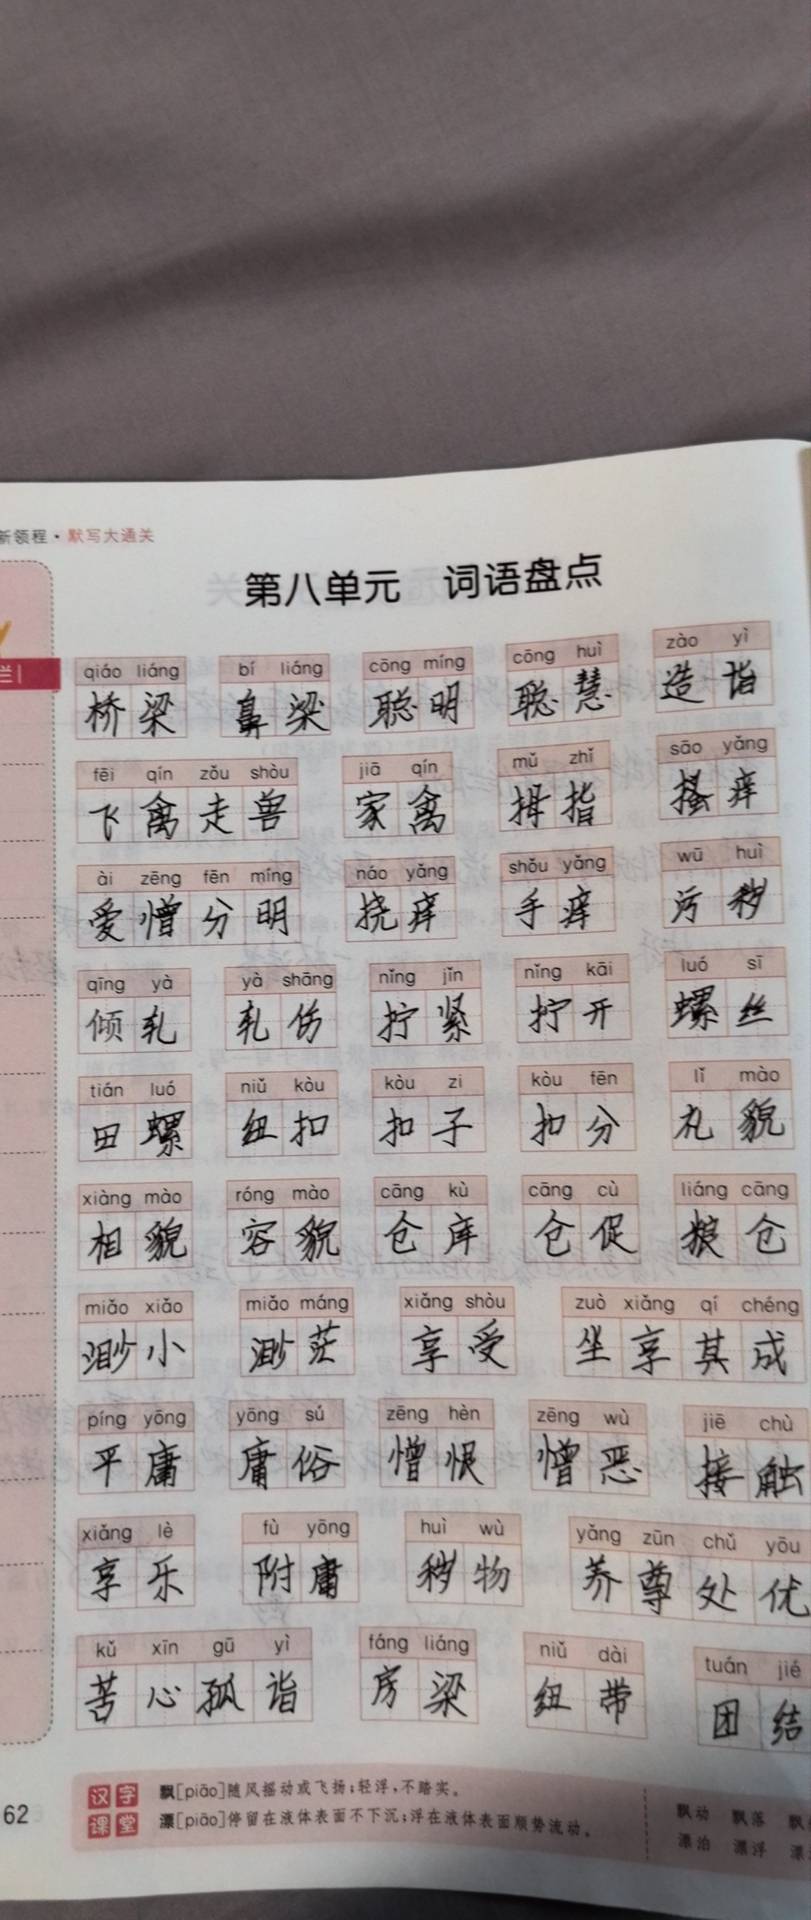 新领程·默写大通关
第八单元 词语盘点
栏
qiáo liáng bí liáng cōng míng cōng huì zào yì
桥梁 鼻梁 聪明 聪慧 造诣
fēi qín zǒu shòu jiā qín mǔ zhǐ sāo yǎng
飞禽走兽 家禽 拇指 搔痒
ài zēng fēn míng náo yǎng shǒu yǎng wū huì
爱憎分明 挠痒 手痒 污秽
qīng yà yà shāng nǐng jǐn nǐng kāi luó sī
倾轧 轧伤 拧紧 拧开 螺丝
tián luó niǔ kòu kòu zi kòu fēn lǐ mào
田螺 纽扣 扣子 扣分 礼貌
xiàng mào róng mào cāng kù cāng cù liáng cāng
相貌 容貌 仓库 仓促 粮仓
miǎo xiǎo miǎo máng xiǎng shòu zuò xiǎng qí chéng
渺小 渺茫 享受 坐享其成
píng yōng yōng sú zēng hèn zēng wù jiē chù
平庸 庸俗 憎恨 憎恶 接触
xiǎng lè fù yōng huì wù yǎng zūn chǔ yōu
享乐 附庸 秽物 养尊处优
kǔ xīn gū yì fáng liáng niǔ dài tuán jié
苦心孤诣 房梁 纽带 团结
汉字课堂
飘[piāo]随风摇动或飞扬;轻浮,不踏实。
漂[piāo]停留在液体表面不下沉;浮在液体表面顺势流动。
飘动 飘落
漂泊 漂浮
62